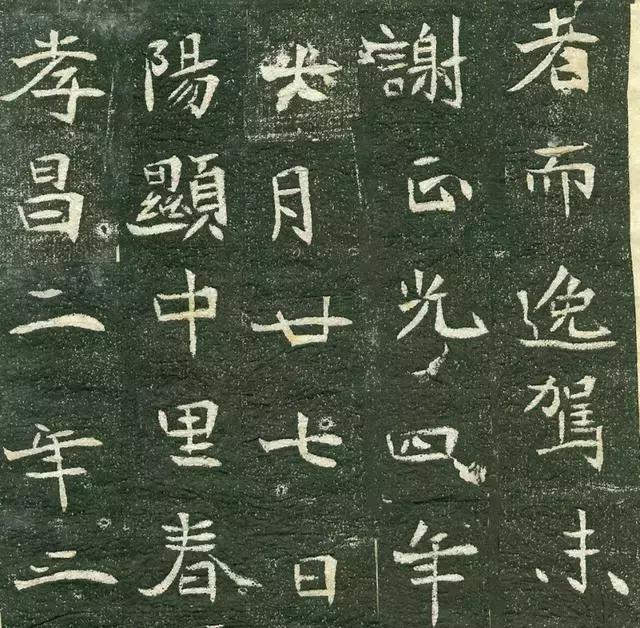 者而逸駕未
謝正光四年
六月廿七日
陽顯中里春
孝昌二年二